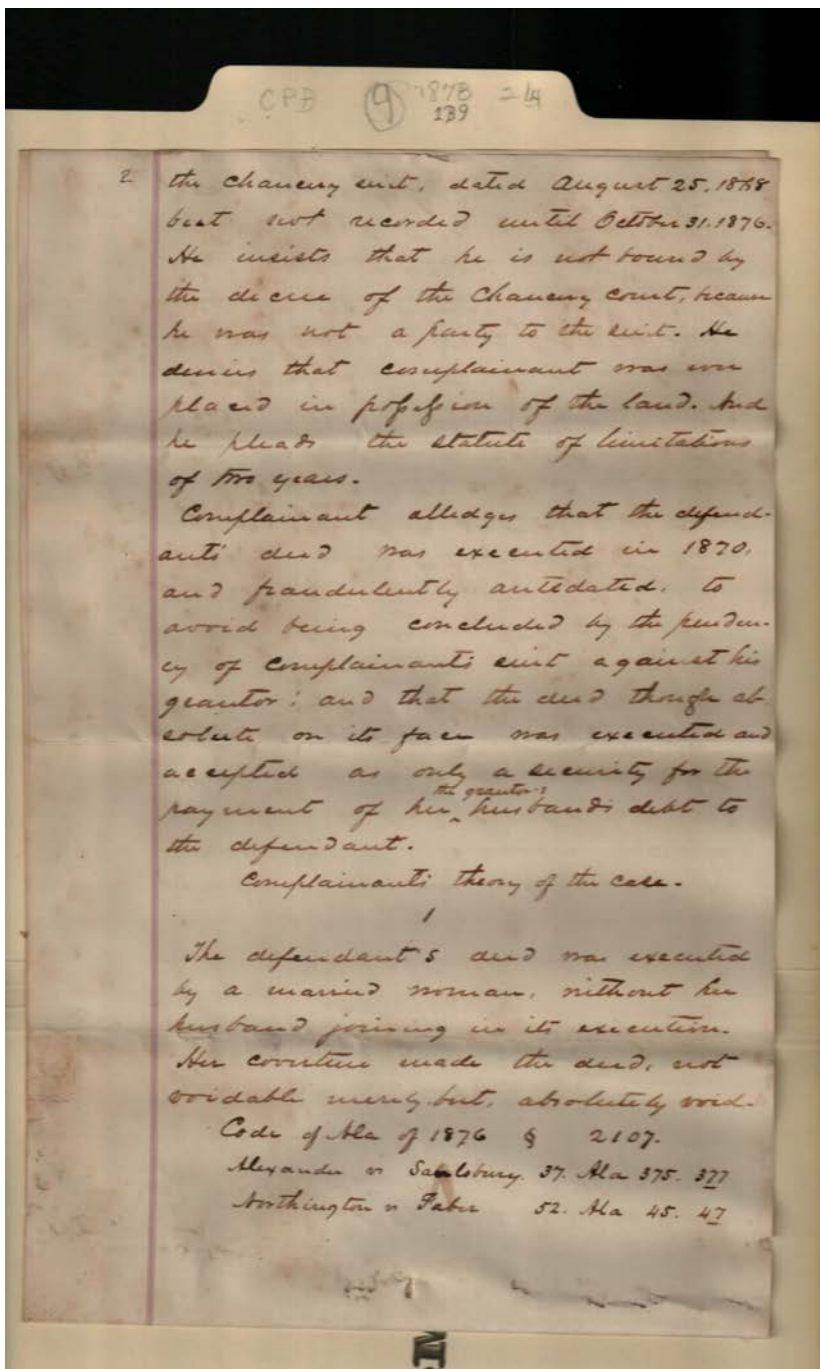 CPB 9 1878 2 14
139
2 the Chancery suit, dated August 25, 1868
but not recorded until October 31. 1876.
He insists that he is not bound by
the decree of the Chancery court, because
he was not a party to the suit. He
denies that complainant was ever
placed in possession of the land. And
he pleads the statute of limitations
of two years.
Complainant alledges that the defend-
ants' deed was executed in 1870,
and fraudulently antedated, to
avoid being concluded by the penden-
cy of complainants suit against his
grantor; and that the deed though ab
solute on its face was executed and
accepted as only a security for the
the grantor's
payment of her husbands debt to
the defendant.
Complainants theory of the case.
1
The defendant s deed was executed
by a married woman, without her
husband joining in its execution.
Her coverture made the deed, not
voidable merely but, absolutely void.
Code of Ala of 1876 § 2107.
Alexander vs Saulsbury. 37. Ala 375. 377
Northington vs Faber 52. Ala 45. 47